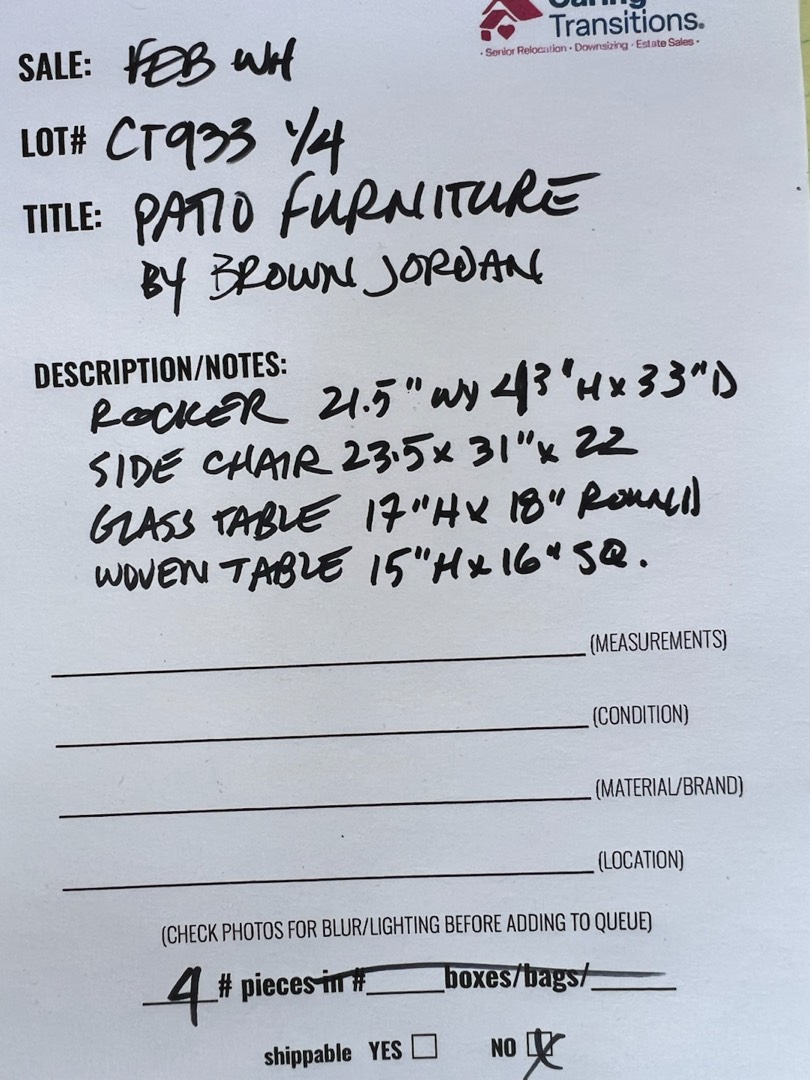 Caring
Transitions.
· Senior Relocation · Downsizing · Estate Sales ·
SALE: FEB WH
LOT# CT933 1/4
TITLE: PATIO FURNITURE
BY BROWN JORDAN
DESCRIPTION/NOTES:
ROCKER 21.5" WX 43"H X 33"D
SIDE CHAIR 23.5 X 31" X 22
GLASS TABLE 17"H X 18" ROUND
WOVEN TABLE 15"H X 16" SQ.
(MEASUREMENTS)
(CONDITION)
(MATERIAL/BRAND)
(LOCATION)
(CHECK PHOTOS FOR BLUR/LIGHTING BEFORE ADDING TO QUEUE)
4 # pieces in #____boxes/bags/____
shippable YES ☐ NO ☒